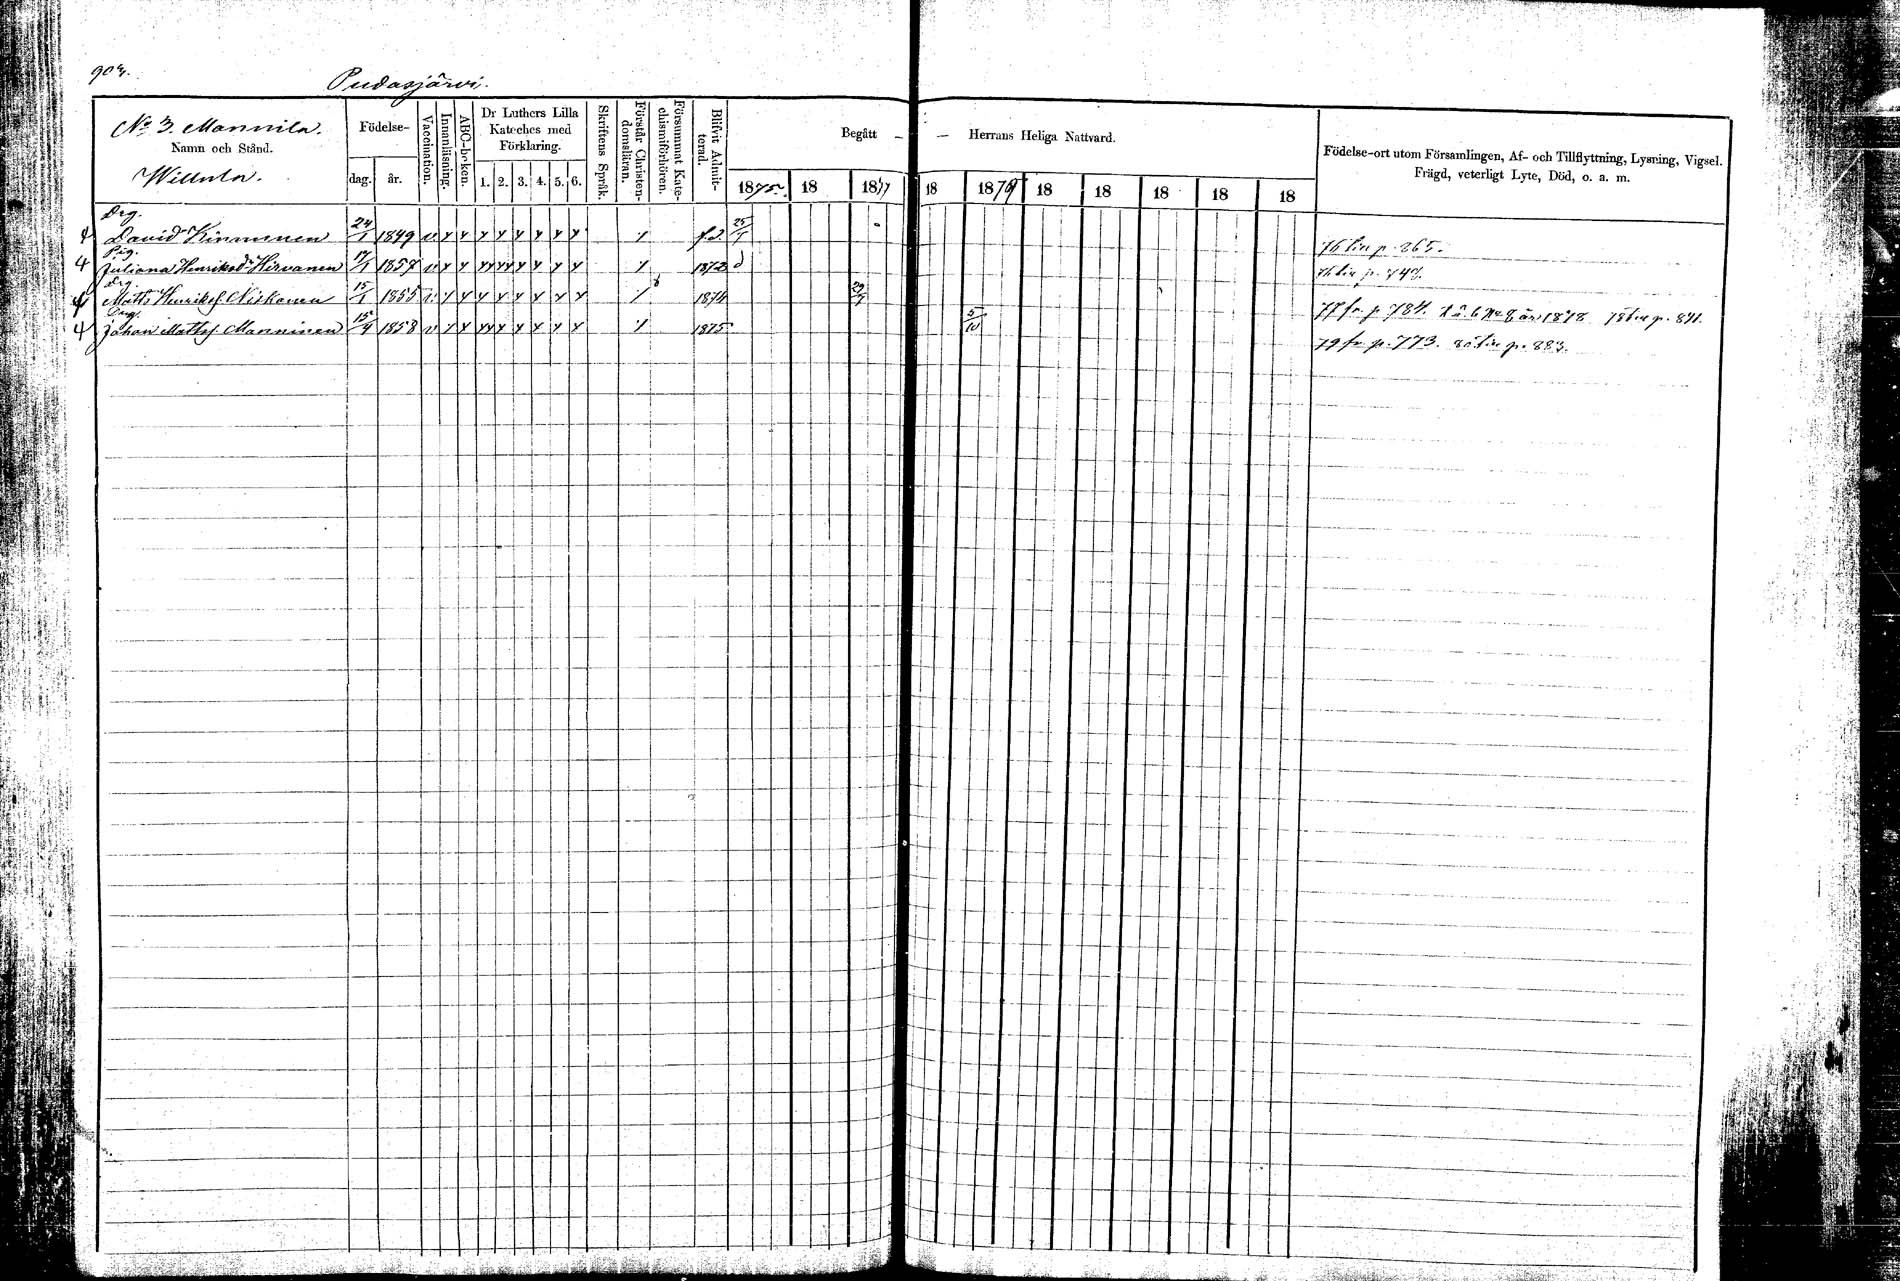 Pudasjärvi.
No 3. Mannila.
Namn och Stånd.
Willula.
Födelse-
dag. år.
Vaccination.
Innanläsning.
ABC-boken.
Dr Luthers Lilla
Kateches med
Förklaring.
1. 2. 3. 4. 5. 6.
Skriftens Språk.
Förstår Christen-
domsläran.
Försummat Kate-
chismiförhören.
Blifvit Admit-
terad.
Begått — — Herrans Heliga Nattvard.
1875 18 1877 18 1879 18 18 18 18 18
Födelse-ort utom Församlingen, Af- och Tillflyttning, Lysning, Vigsel.
Frägd, veterligt Lyte, Död, o. a. m.
Drg.
David Kinnunen 24/1 1849 v y y y y y y y y y f.d. 25/1 76 till p. 265.
Pig.
Juliana Henriksdr Hirvanen 17/1 1857 v y y yy yy y y y y y 1872
Drg.
Matts Henrikss. Niskanen 15/1 1855 v y y y y y y y y y 1874 29/7 77 fr. p. 784. 78 till p. 841.
Drg.
Johan Matss. Manninen 15/4 1858 v y y yy y y y y y y 1875 5/10 79 fr p. 773. 80 till p. 883.